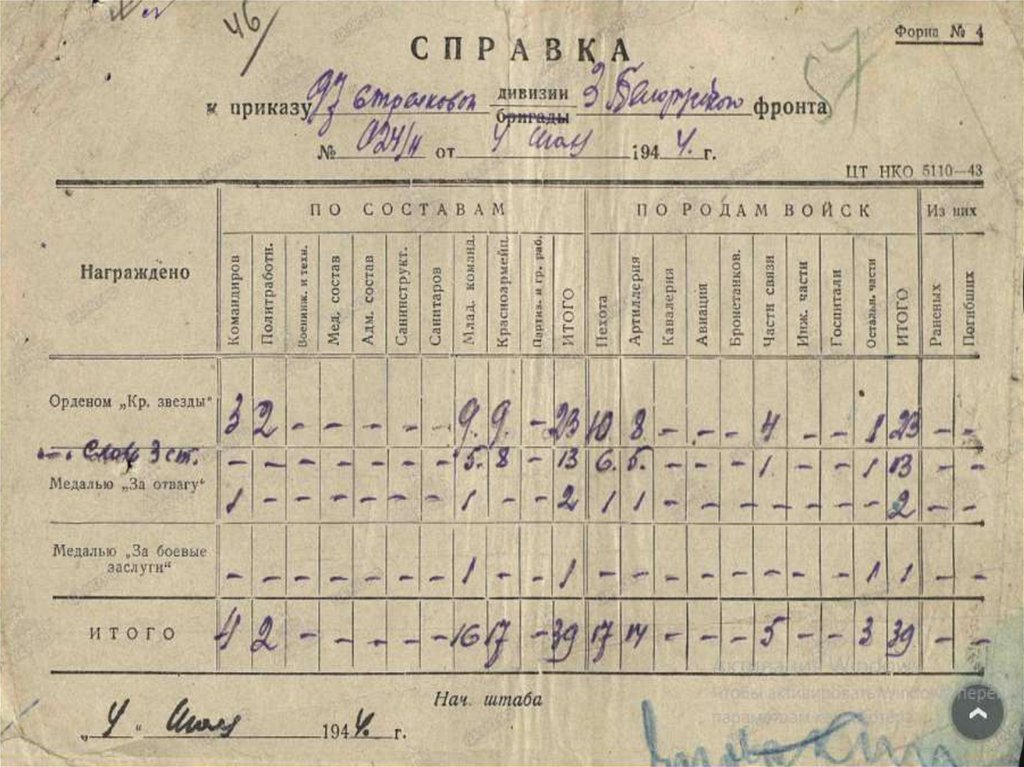 46/
Форма № 4
57
СПРАВКА
к приказу стрелковой дивизии бригады 3 Белорусского фронта
№ 024/н от 4 1944. г.
ЦТ НКО 5110—43
Награждено ПО СОСТАВАМ ПО РОДАМ ВОЙСК Из них
Командиров Политработн. Воениж. и техн. Мед. состав Адм. состав Санинструкт. Санитаров Млад. команд. Красноармейц. Партиз. и гр. раб. ИТОГО Пехота Артиллерия Кавалерия Авиация Бронетанков. Части связи Инж. части Госпитали Остальн. части ИТОГО Раненых Погибших
Орденом „Кр. звезды" 3 2 - - - - - 9. 9. - 23 10 8 - - - 4 - - 1 23 - -
—"— Славы 3 ст. - - - - - - - 5. 8 - 13 6. 5. - - - 1 - - 1 13 - -
Медалью „За отвагу" 1 - - - - - - 1 - - 2 1 1 - - - - - - - 2 - -
Медалью „За боевые
заслуги" - - - - - - - 1 - - 1 - - - - - - - - 1 1 - -
ИТОГО 4 2 - - - - - 16 17 - 39 17 14 - - - 5 - - 3 39 - -
Нач. штаба
„4" 1944. г.
Активация Windows
Чтобы активировать Windows, перей
параметрам компьютера.